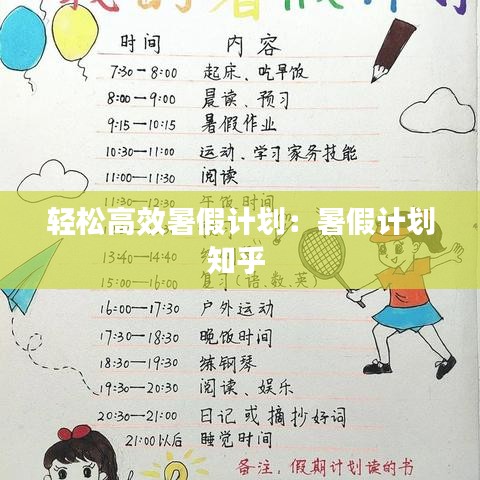 我的暑假计划
时间 内容
7:30—8:00 起床、吃早饭
8:00—9:00 晨读、预习
9:15—10:15 暑假作业
10:30—11:00 运动、学习家务技能
11:00—11:30 阅读
11:30—12:30 午饭时间
轻松高效暑假计划：暑假计划
知乎
13:40—14:40
复习(语、数、英)
16:00—17:30 户外运动
17:30—18:30 晚饭时间
18:30—19:30 练钢琴
19:30—20:30 阅读、娱乐
20:30—21:00 日记或摘抄好词
21:00以后 睡觉时间
备注：假期计划读的书